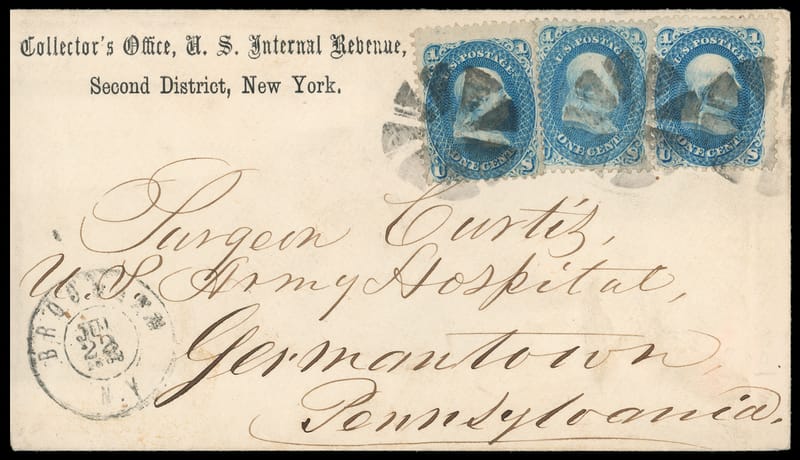 Collector's Office, U. S. Internal Revenue,
Second District, New York.
1 U.S. POSTAGE 1
ONE CENT
U S
1 U.S. POSTAGE 1
ONE CENT
U S
1 U.S. POSTAGE 1
ONE CENT
U S
Surgeon Curtis,
U S Army Hospital,
Germantown,
Pennsylvania.
BROOKLYN
N.Y.